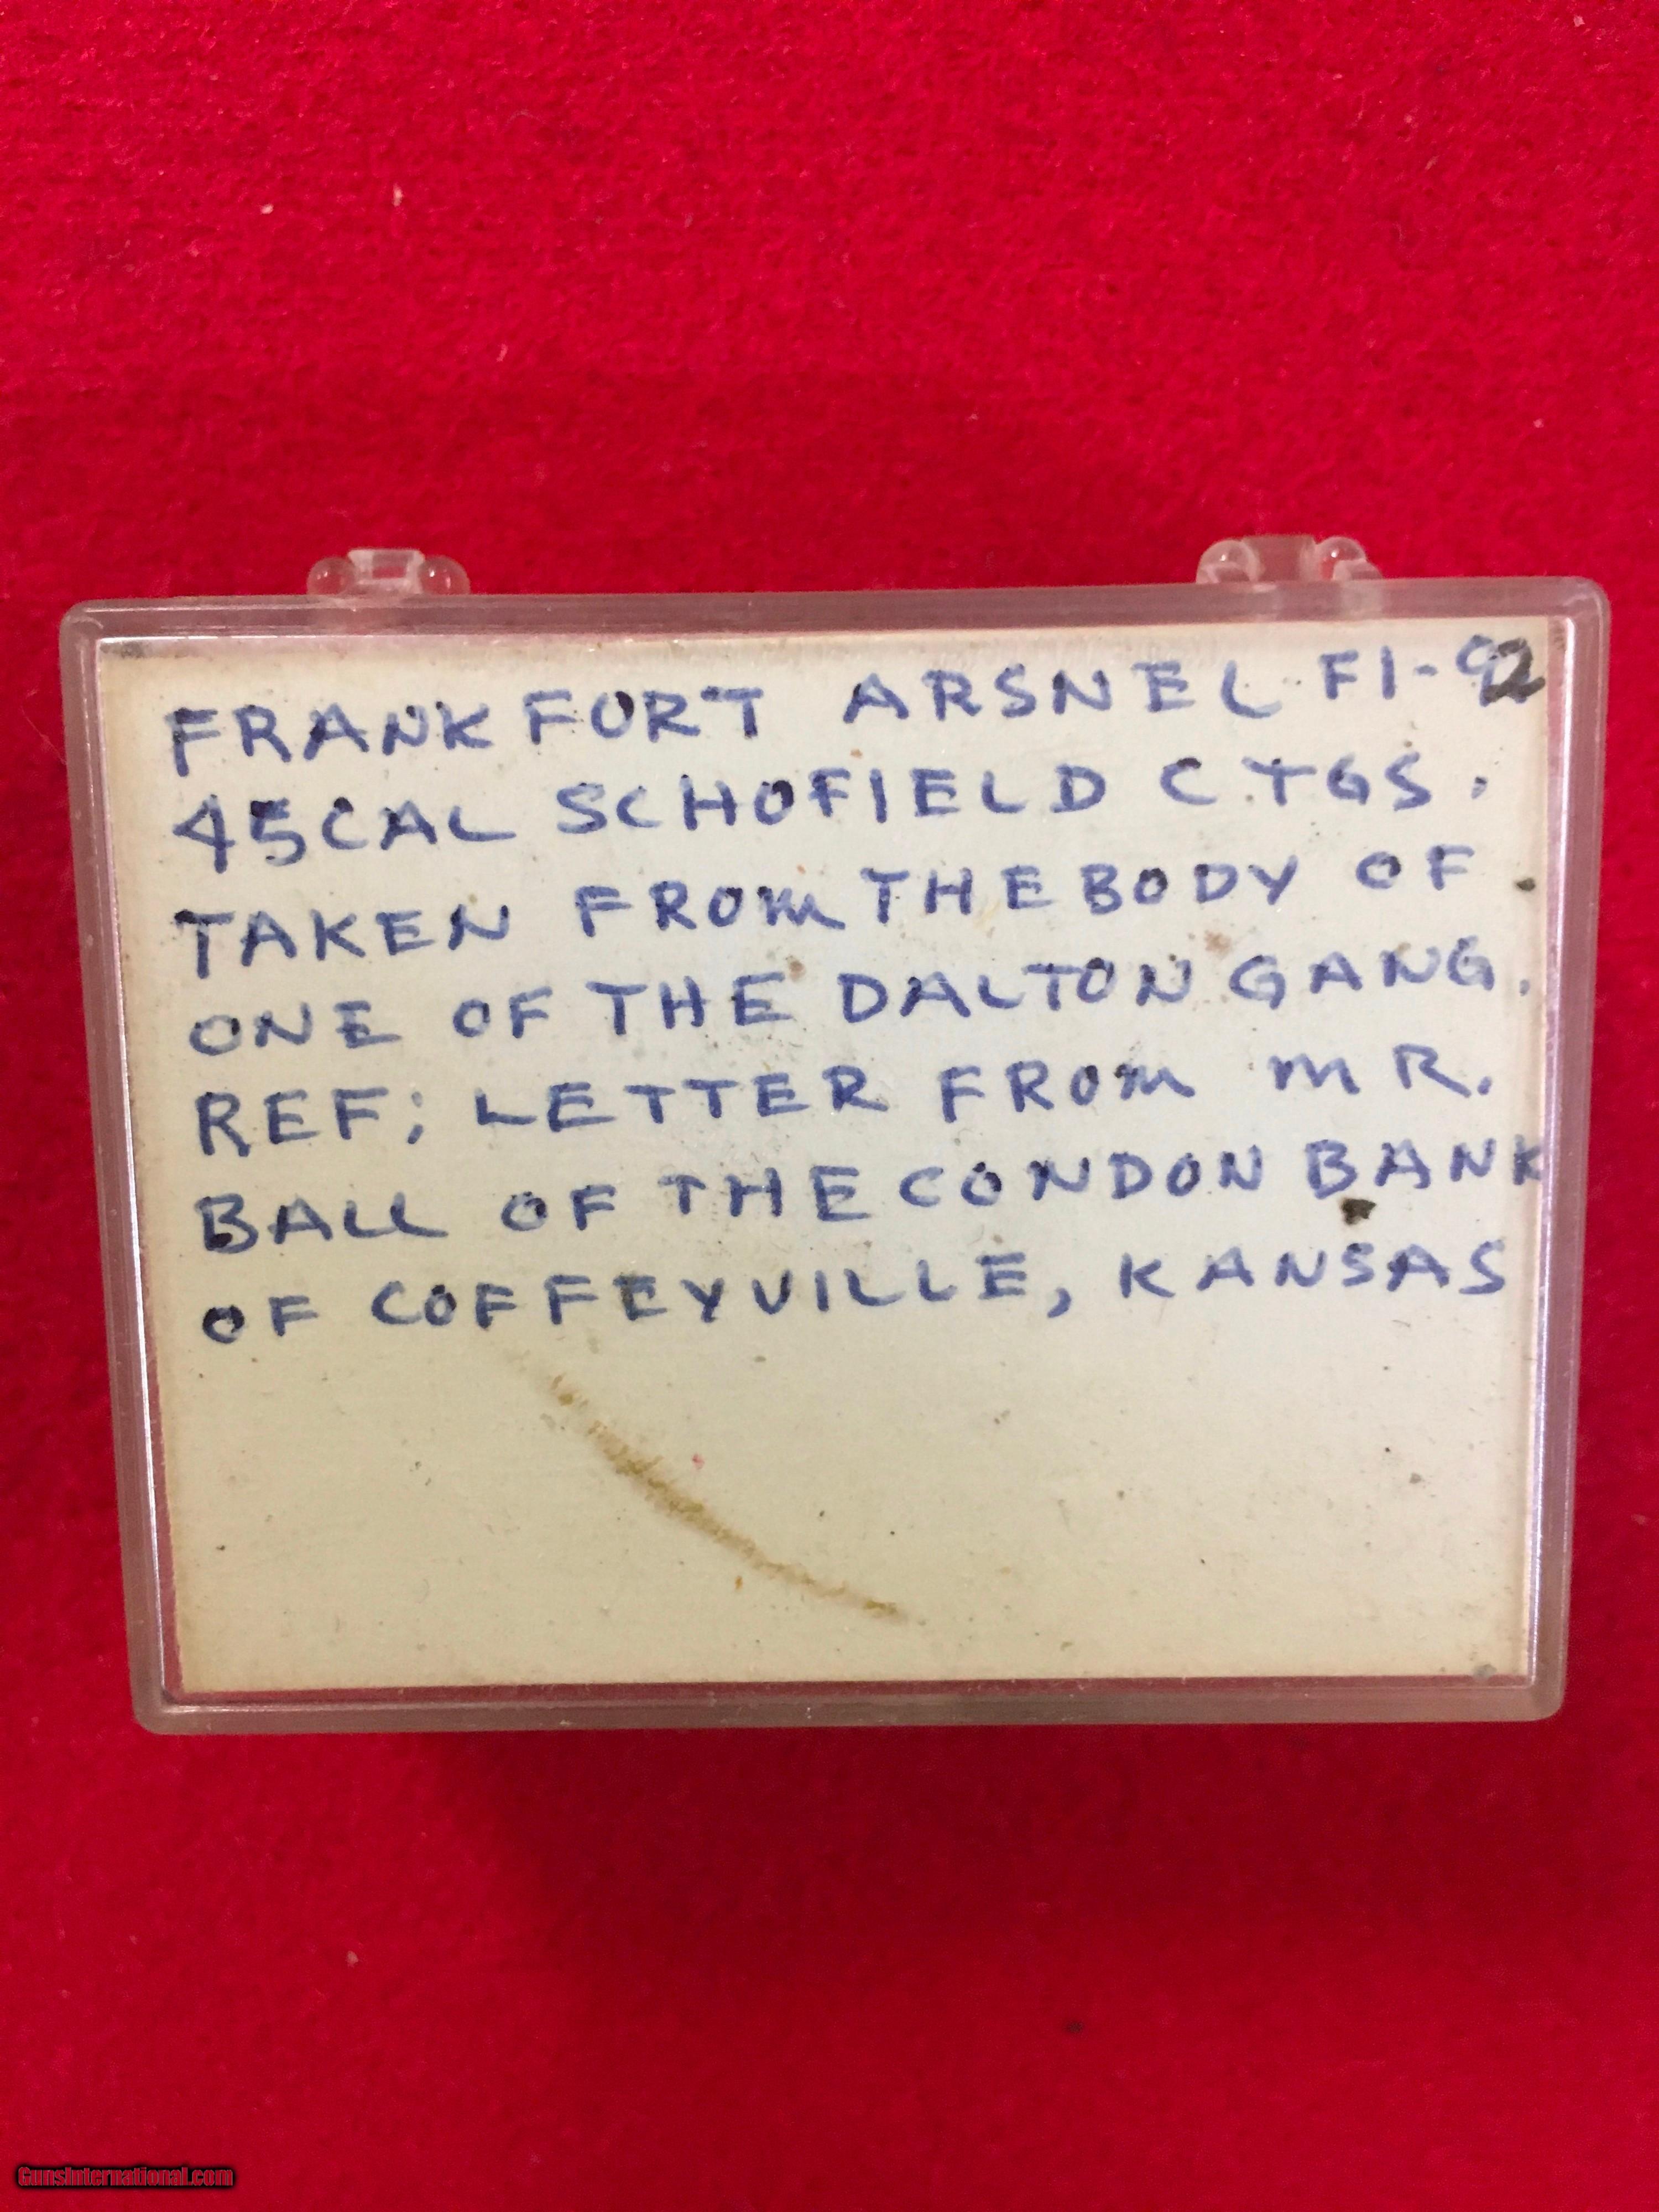 FRANKFORT ARSNEL F1-92
45CAL SCHOFIELD CTGS.
TAKEN FROM THE BODY OF
ONE OF THE DALTON GANG.
REF; LETTER FROM MR.
BALL OF THE CONDON BANK
OF COFFEYVILLE, KANSAS
GunsInternational.com